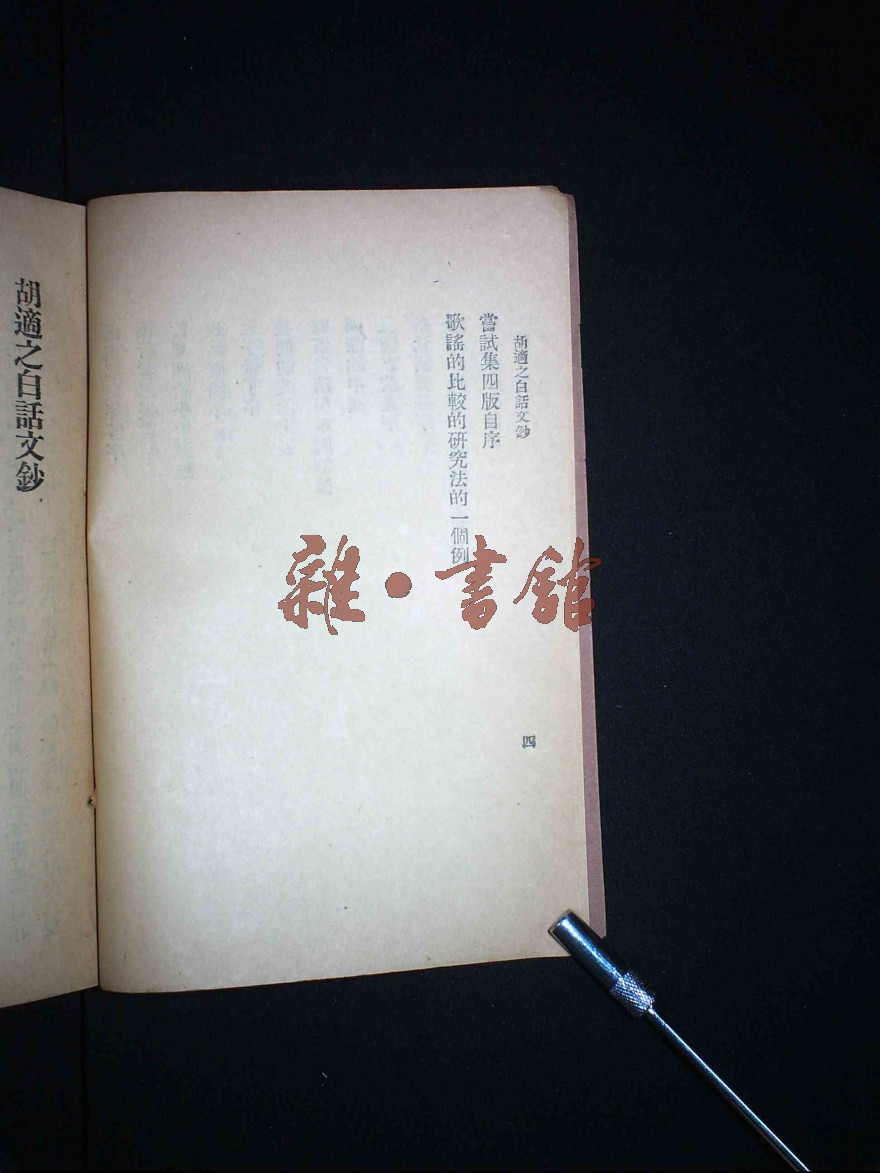 胡適之白話文鈔
嘗試集四版自序
歌謠的比較的研究法的一個例
四
胡適之白話文鈔
雜·書館